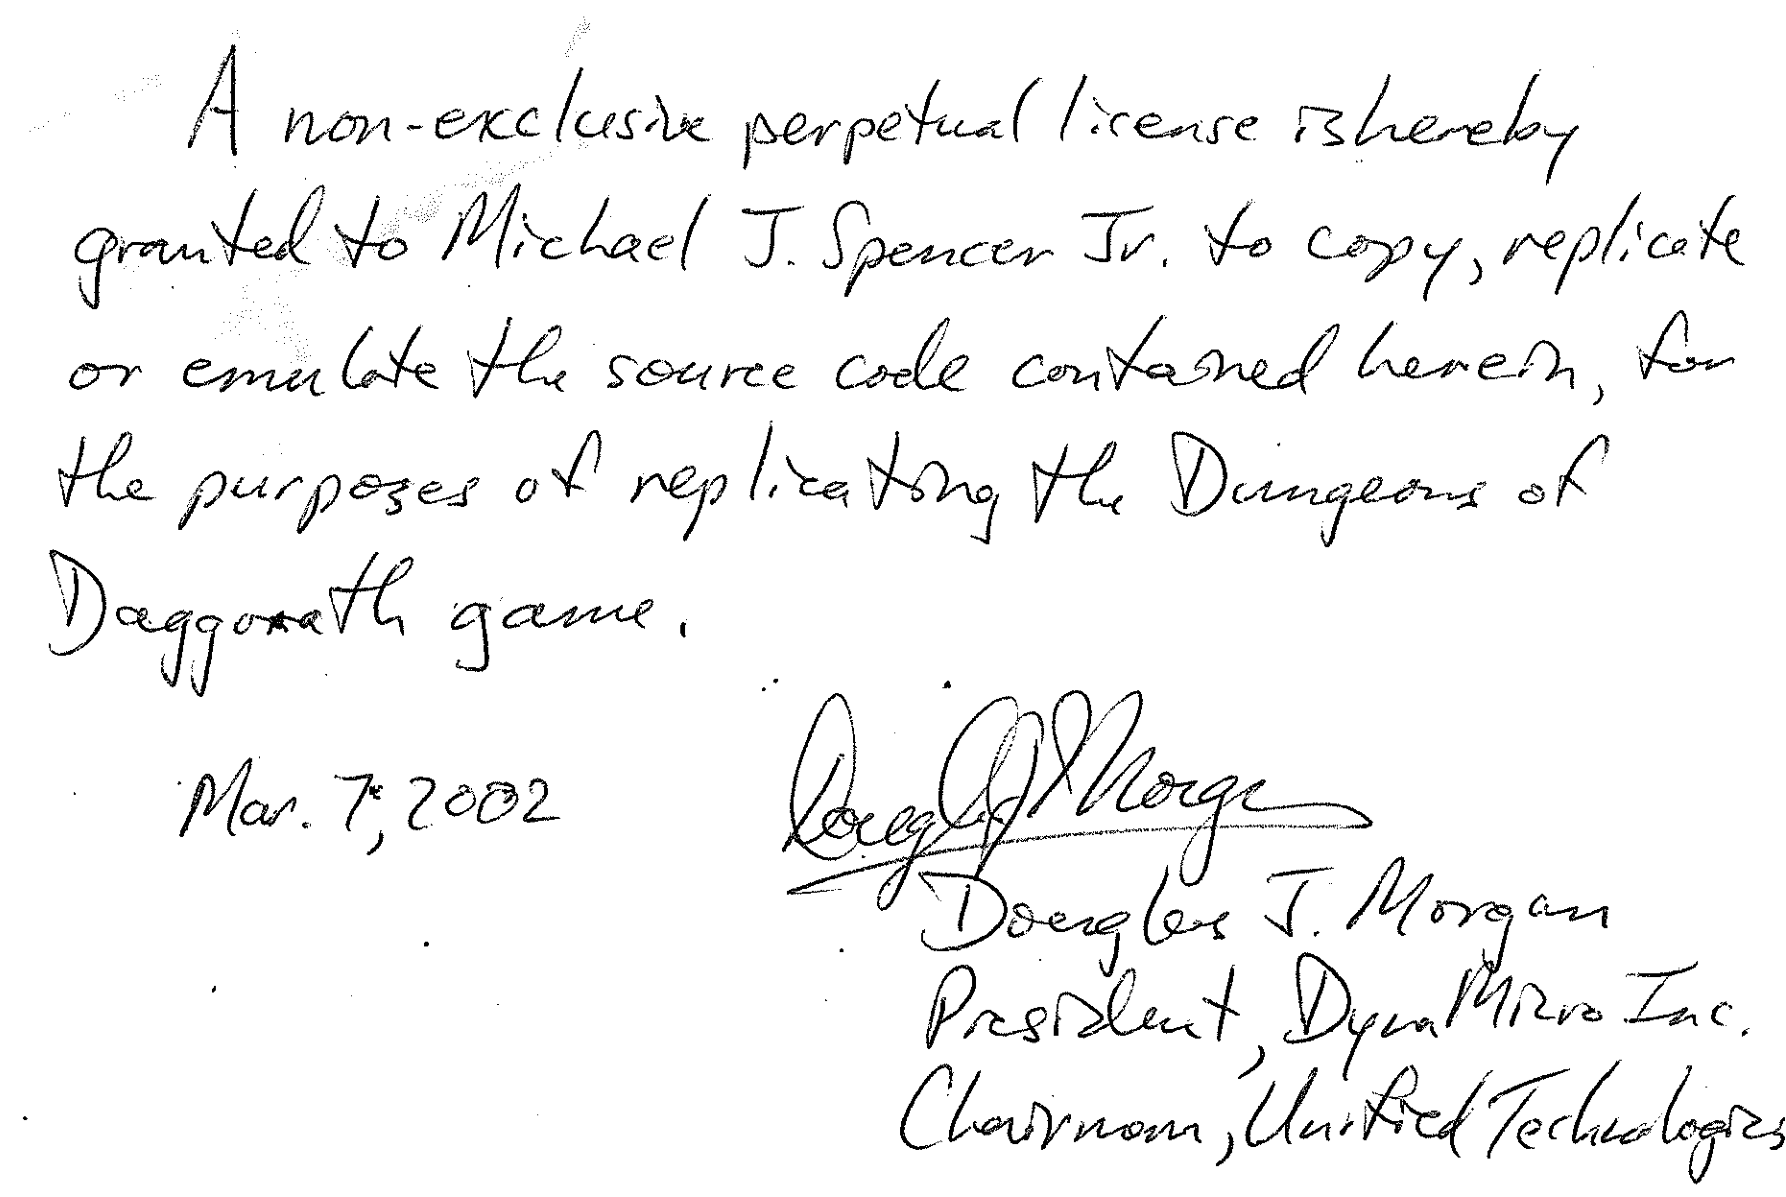 A non-exclusive perpetual license is hereby
granted to Michael J. Spencer Jr. to copy, replicate
or emulate the source code contained herein, for
the purposes of replicating the Dungeons of
Daggorath game.
Mar. 7, 2002
Douglas J Morgan
Douglas J. Morgan
President, DynaMicro Inc.
Chairman, Unified Technologies